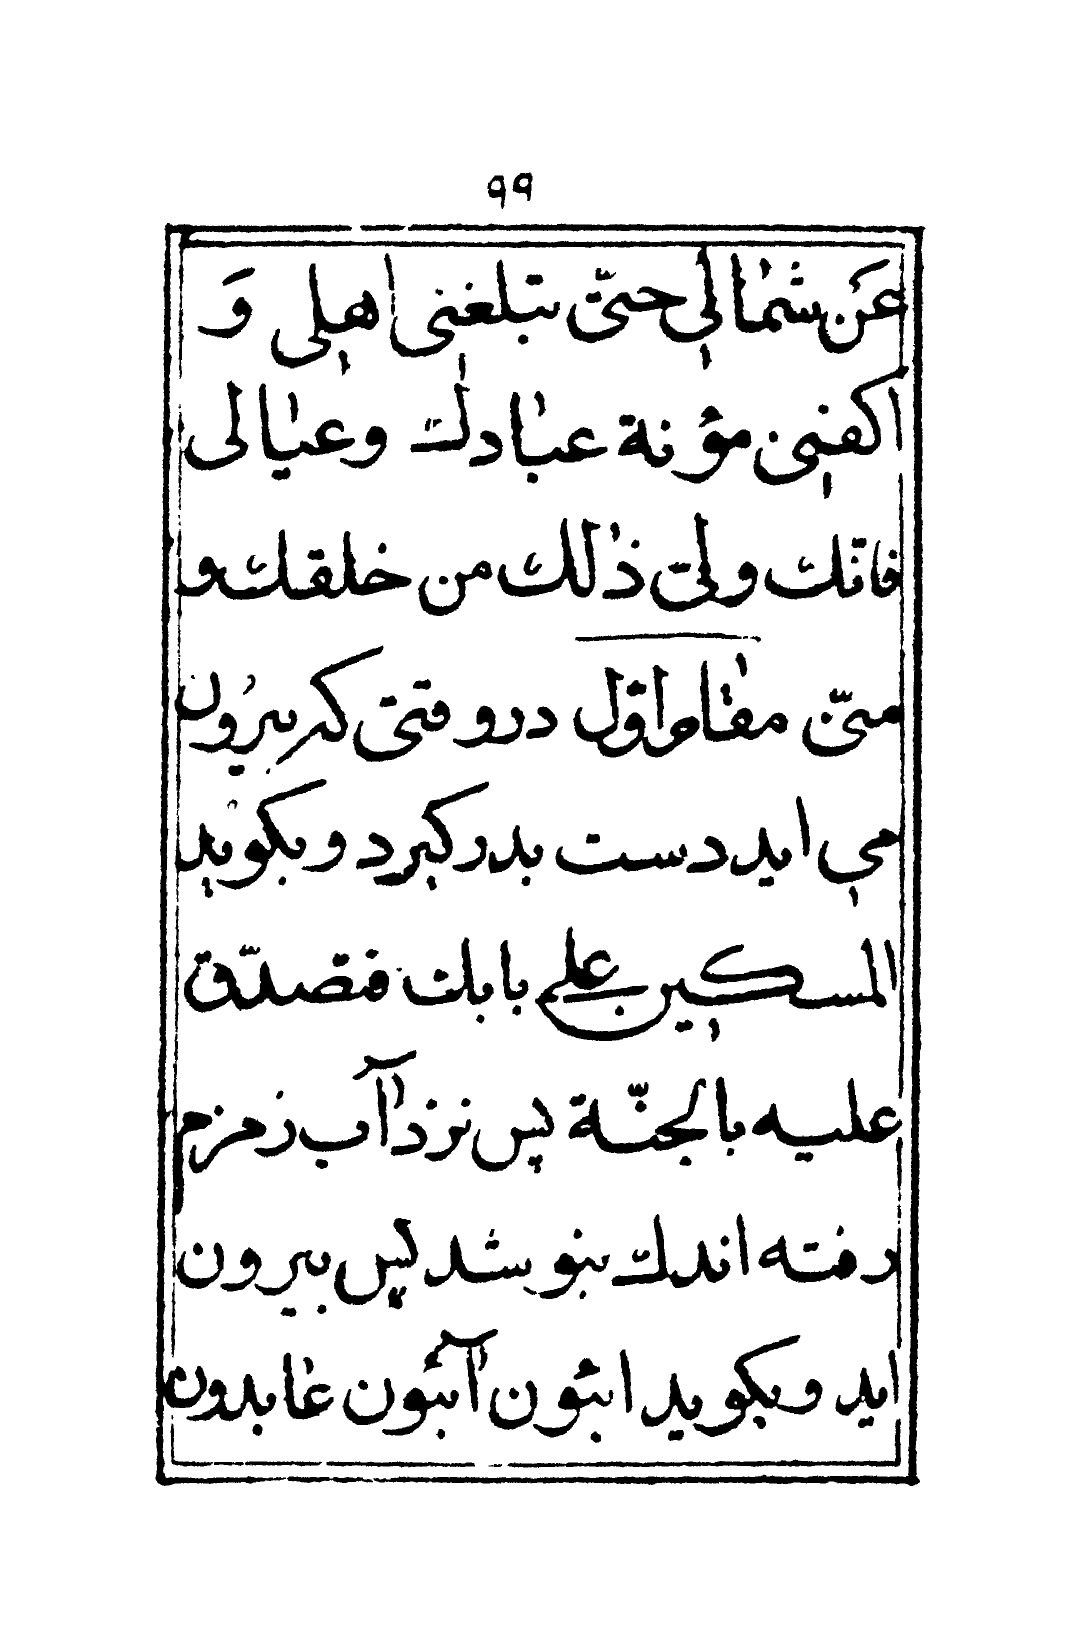 ٩٩
عَن شمالى حتّى تبلغنى اهلى وَ
اكفنى مؤنة عبادك وعيالى
فانّك ولىّ ذلك من خلقك و
منّى مقام اوّل در وقتى كه بيرون
مى ايد دست بدر كيرد و بكويد
المسكين على بابك فتصدّق
عليه بالجنّة پس نزد آب زمزم
رفته اندك بنوشد پس بيرون
ايد و بكويد ائبون آئبون عابدون